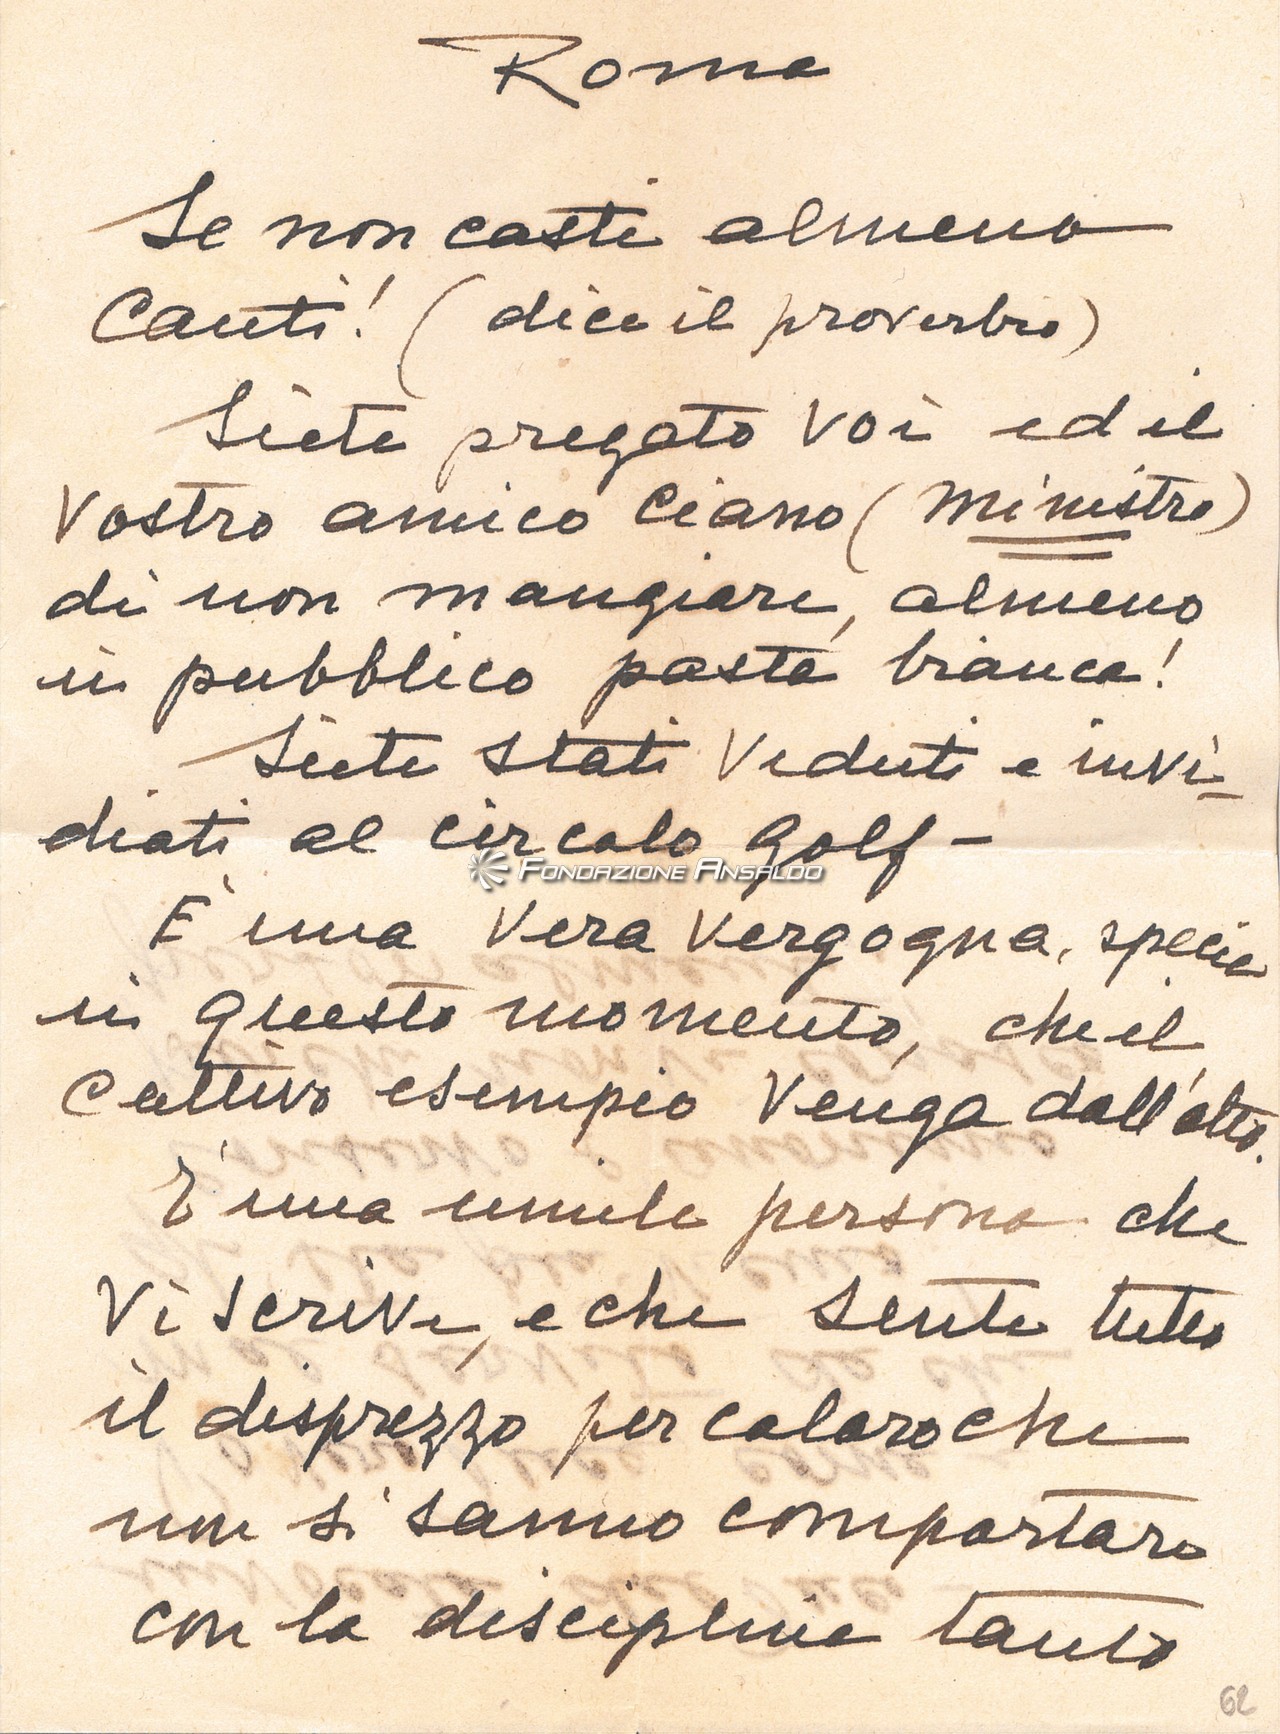 Roma
Se non casti almeno
Cauti! (dice il proverbio)
Siete pregato voi ed il
vostro amico Ciano (Ministro)
di non mangiare, almeno
in pubblico pasta bianca!
Siete stati veduti e invi-
diati al circolo golf -
FONDAZIONE ANSALDO
È una vera vergogna, specie
in questo momento, che il
cattivo esempio venga dall'alto.
È una umile persona che
vi scrive, e che sente tutto
il disprezzo per coloro che
non si sanno comportare
con la disciplina tanto
62